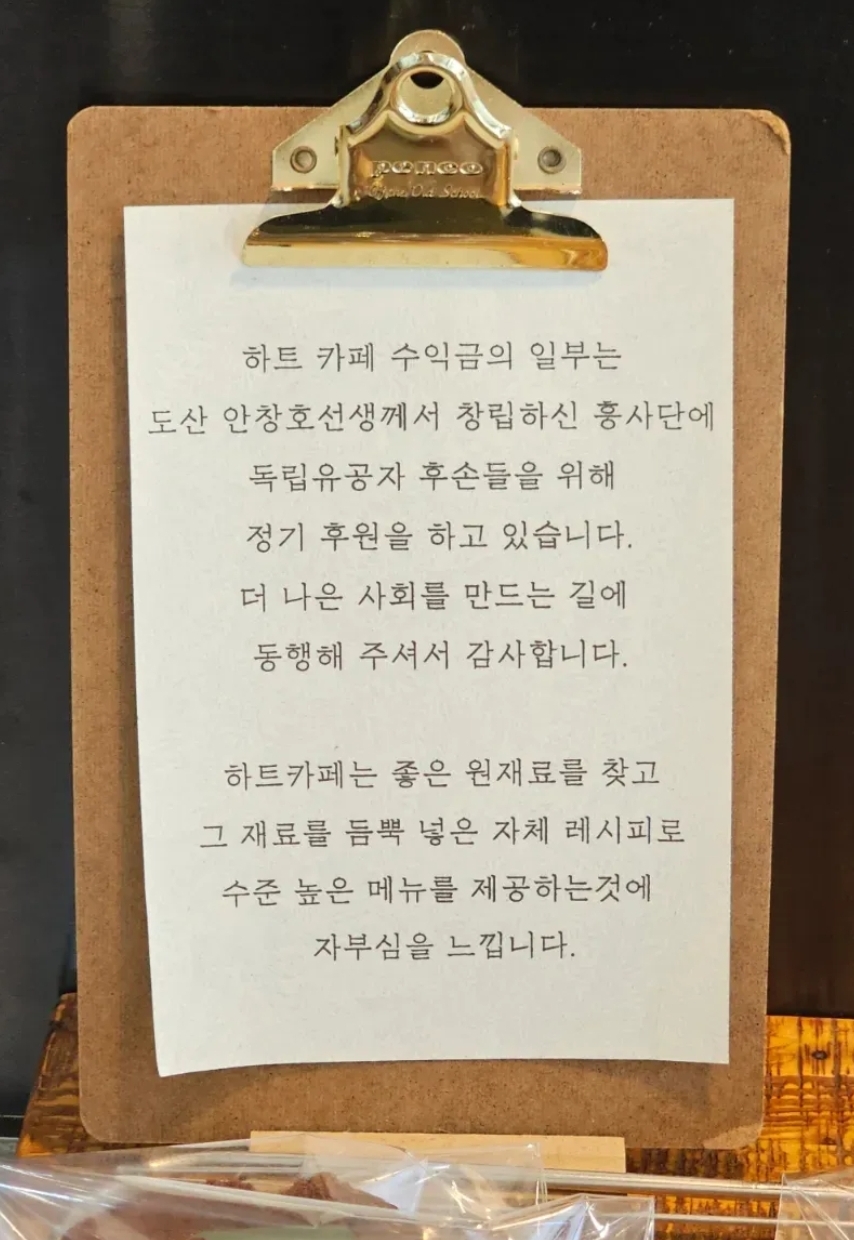 penco
Old School
하트 카페 수익금의 일부는
도산 안창호선생께서 창립하신 흥사단에
독립유공자 후손들을 위해
정기 후원을 하고 있습니다.
더 나은 사회를 만드는 길에
동행해 주셔서 감사합니다.
하트카페는 좋은 원재료를 찾고
그 재료를 듬뿍 넣은 자체 레시피로
수준 높은 메뉴를 제공하는것에
자부심을 느낍니다.